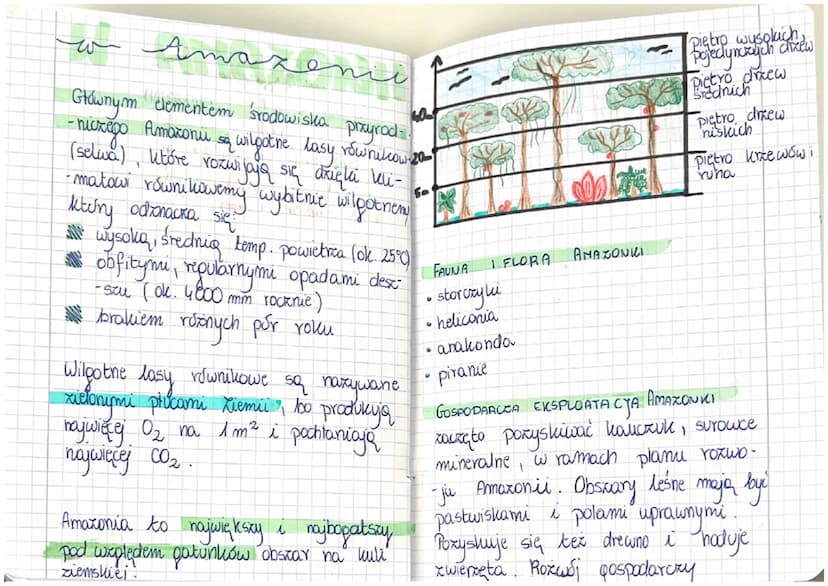 w Amazonii
Głównym elementem środowiska przyrod-
-niczego Amazonii są wilgotne lasy równikow.
(selwa), które rozwijają się dzięki kli-
-matowi równikowemy wybitnie wilgotnemy
który odznacza się:
wysoką, średnią temp. powietrza (ok. 25°C)
obfitymi, regularnymi opadami desz-
-szu (ok. 4000 mm rocznie)
brakiem różnych pór roku
Wilgotne lasy równikowe są nazywane
zielonymi płucami ziemii, bo produkują
najwięcej O2 na 1m² i pochłaniają
najwięcej CO2.
Amazonia to największy i najbogatszy
pod względem gatunków obszar na kuli
ziemskiej.
piętro wysokich,
pojedynczych drzew
piętro drzew
średnich
40m
piętro drzew
niskich
20m
piętro krzewów i
runa
5m
FAUNA I FLORA AMAZONKI
• storczyki
• heliconia
• anakonda
• piranie
GOSPODARCZA EKSPLOATACJA AMAZONKI
zaczęto pozyskiwać kauczuk, surowce
mineralne, w ramach planu rozwo-
-ju Amazonii. Obszary leśne mają być
pastwiskami i polami uprawnymi.
Pozyskuje się też drewno i hoduje
zwierzęta. Rozwój gospodarczy